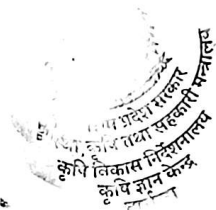 प्रदेश सरकार
कृषि तथा सहकारी मन्त्रालय
कृषि विकास निर्देशनालय
कृषि ज्ञान केन्द्र